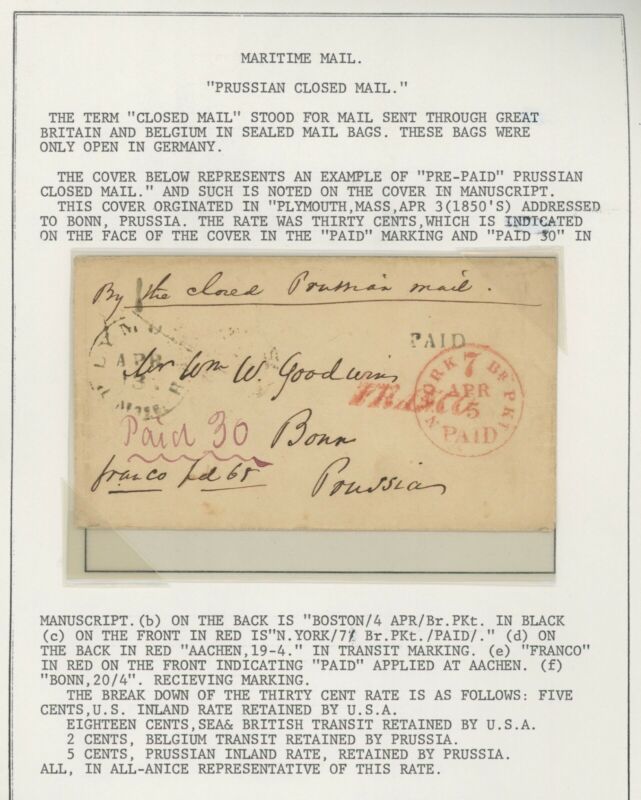 MARITIME MAIL.
"PRUSSIAN CLOSED MAIL."
THE TERM "CLOSED MAIL" STOOD FOR MAIL SENT THROUGH GREAT
BRITAIN AND BELGIUM IN SEALED MAIL BAGS. THESE BAGS WERE
ONLY OPEN IN GERMANY.
THE COVER BELOW REPRESENTS AN EXAMPLE OF "PRE-PAID" PRUSSIAN
CLOSED MAIL." AND SUCH IS NOTED ON THE COVER IN MANUSCRIPT.
THIS COVER ORGINATED IN "PLYMOUTH,MASS,APR 3(1850'S) ADDRESSED
TO BONN, PRUSSIA. THE RATE WAS THIRTY CENTS,WHICH IS INDICATED
ON THE FACE OF THE COVER IN THE "PAID" MARKING AND "PAID 30" IN
By the closed Prussian mail.
PAID
PLYMO
APR
Mr Wm W. Goodwin
FRANCO
N. YORK 7 Br. PKT
APR
5
PAID
Paid 30
Bonn
franco pd 68
Prussia
MANUSCRIPT.(b) ON THE BACK IS "BOSTON/4 APR/Br.PKt. IN BLACK
(c) ON THE FRONT IN RED IS"N.YORK/7/ Br.PKt./PAID/." (d) ON
THE BACK IN RED "AACHEN,19-4." IN TRANSIT MARKING. (e) "FRANCO"
IN RED ON THE FRONT INDICATING "PAID" APPLIED AT AACHEN. (f)
"BONN,20/4". RECIEVING MARKING.
THE BREAK DOWN OF THE THIRTY CENT RATE IS AS FOLLOWS: FIVE
CENTS,U.S. INLAND RATE RETAINED BY U.S.A.
EIGHTEEN CENTS,SEA& BRITISH TRANSIT RETAINED BY U.S.A.
2 CENTS, BELGIUM TRANSIT RETAINED BY PRUSSIA.
5 CENTS, PRUSSIAN INLAND RATE, RETAINED BY PRUSSIA.
ALL, IN ALL-ANICE REPRESENTATIVE OF THIS RATE.